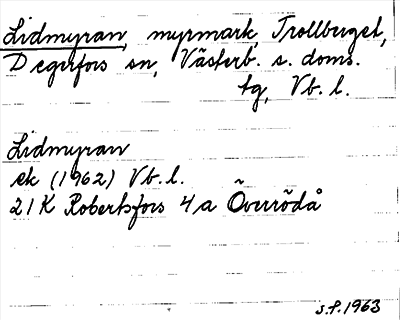 Lidmyran, myrmark, Trollberget,
Degerfors sn, Västerb. s. doms.
tg, Vb. l.
Lidmyran
ek (1962) Vb. l.
21K Robertsfors 4a Överrödå
S.P. 1963